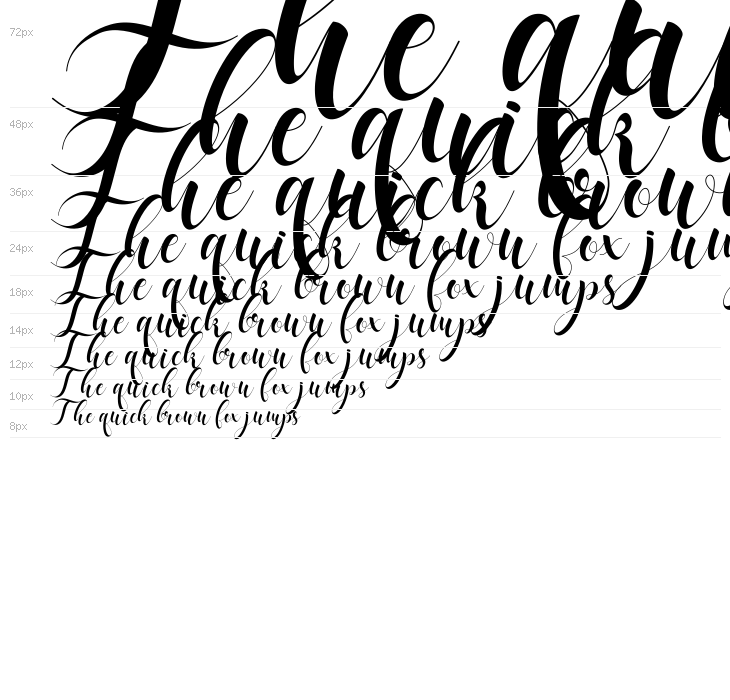 72px The qu
48px The quick
36px The quick brow
24px The quick brown fox jum
18px The quick brown fox jumps
14px The quick brown fox jumps
12px The quick brown fox jumps
10px The quick brown fox jumps
8px The quick brown fox jumps